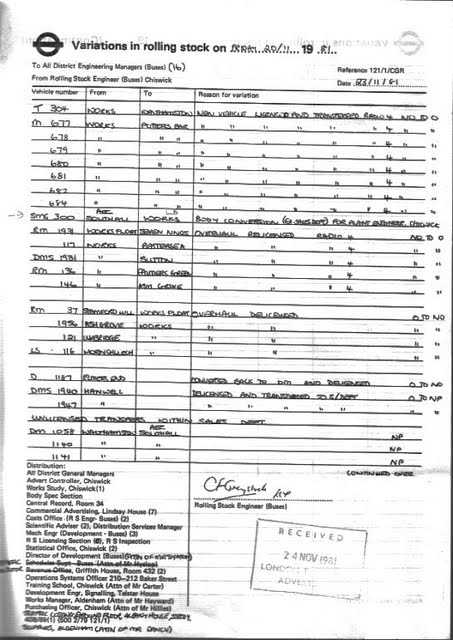 Variations in rolling stock on 20/11 1981.
To All District Engineering Managers (Buses) (16)
From Rolling Stock Engineer (Buses) Chiswick
Reference 121/1/CGR
Date 23/11/81
Vehicle number From To Reason for variation
T 304 WORKS WALTHAMSTOW NEW VEHICLE LICENSED AND TRANSFERRED RADIO 4 NO TO O
M 677 WORKS POTTERS BAR " " " " " 4 "
678 " " " " " " " 4 "
679 " " " " " " " 4 "
680 " " " " " " " 4 "
681 " " " " " " " 4 "
682 " " " " " " " 4 "
684 " " " " " " " 4 "
SMS 300 AEC SOUTHALL WORKS BODY CONVERSION FOR PLANT ENGINEER CHISWICK
RM 1931 WORKS FLOAT SEVEN KINGS OVERHAUL RELICENSED RADIO 4 NO TO O
117 WORKS BATTERSEA " " " 4 "
DMS 1981 " SUTTON " " " 4 "
RM 136 " PALMERS GREEN " " " 4 "
146 " ASH GROVE " " " 4 "
RM 37 STAMFORD HILL WORKS FLOAT OVERHAUL DELICENSED O TO NO
1956 ASH GROVE WORKS " " "
121 UXBRIDGE " " " "
LS 116 HORNCHURCH " " " "
D 1187 ELMERS END CONVERTED BACK TO DM AND DELICENSED O TO NO
DMS 1940 HANWELL DELICENSED AND TRANSFERRED TO S/DEPT O TO NP
1947 " " " " " " "
UNLICENSED TRANSFERS WITHIN SALES DEPT.
DM 1058 WALTHAMSTOW AEC SOUTHALL NP
1140 " " NP
1141 " " NP
CONTINUED OVER
Distribution:
All District General Managers
Advert Controller, Chiswick
Works Study, Chiswick(1)
Body Spec Section
Central Record, Room 34
Commercial Advertising, Lindsay House (7)
Costs Office (R S Engr- Buses) (2)
Scientific Adviser (2), Distribution Services Manager
Mech Engr (Development - Buses) (3)
R S Licensing Section (6), R S Inspection
Statistical Office, Chiswick (2)
Director of Development (Buses)
Schedules Supt - Buses (Attn of Mr Hyslop)
Revenue Office, Griffith House, Room 432 (2)
Operations Systems Officer 210-212 Baker Street
Training School, Chiswick (Attn of Mr Carter)
Development Engr, Signalling, Telstar House
Works Manager, Aldenham (Attn of Mr Hayward)
Purchasing Officer, Chiswick (Attn of Mr Hillies)
408/89(1) (500 2/79 121/1)
Rolling Stock Engineer (Buses)
RECEIVED
24 NOV 1981